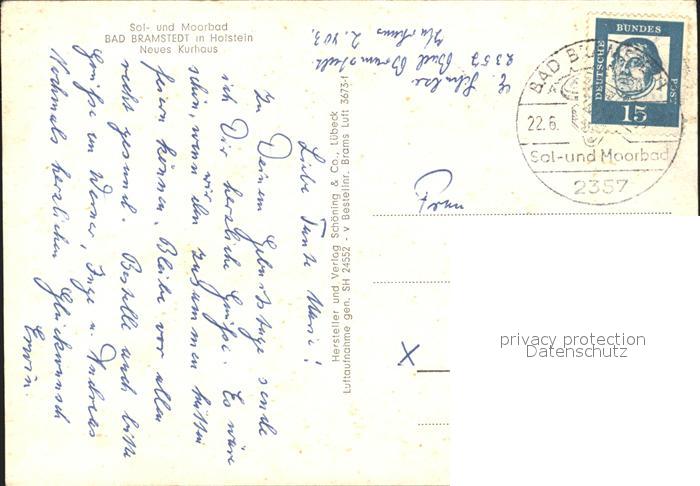 Sol- und Moorbad
BAD BRAMSTEDT in Holstein
Neues Kurhaus
Liebe Tante Marie!
Zu Deinem Geburtstage sende
ich Dir herzliche Grüße. Es wäre
schön, wenn wir ihn zusammen hätten
feiern können. Bleibe vor allem
recht gesund. Bestelle auch bitte
Grüße an Werner, Inge u. Andreas
Nochmals herzlichen Glückwunsch
Erwin.
Hersteller und Verlag Schöning & Co., Lübeck
Luftaufnahme gen. SH 24552 - V Bestellnr. Brams Luft 3673-f
2357 Bad Bramstedt
Kurhaus Z. 403.
DEUTSCHE BUNDES POST
15
BAD BRAMSTEDT
22.6.
Sol-und Moorbad
2357
Frau
X
privacy protection
Datenschutz